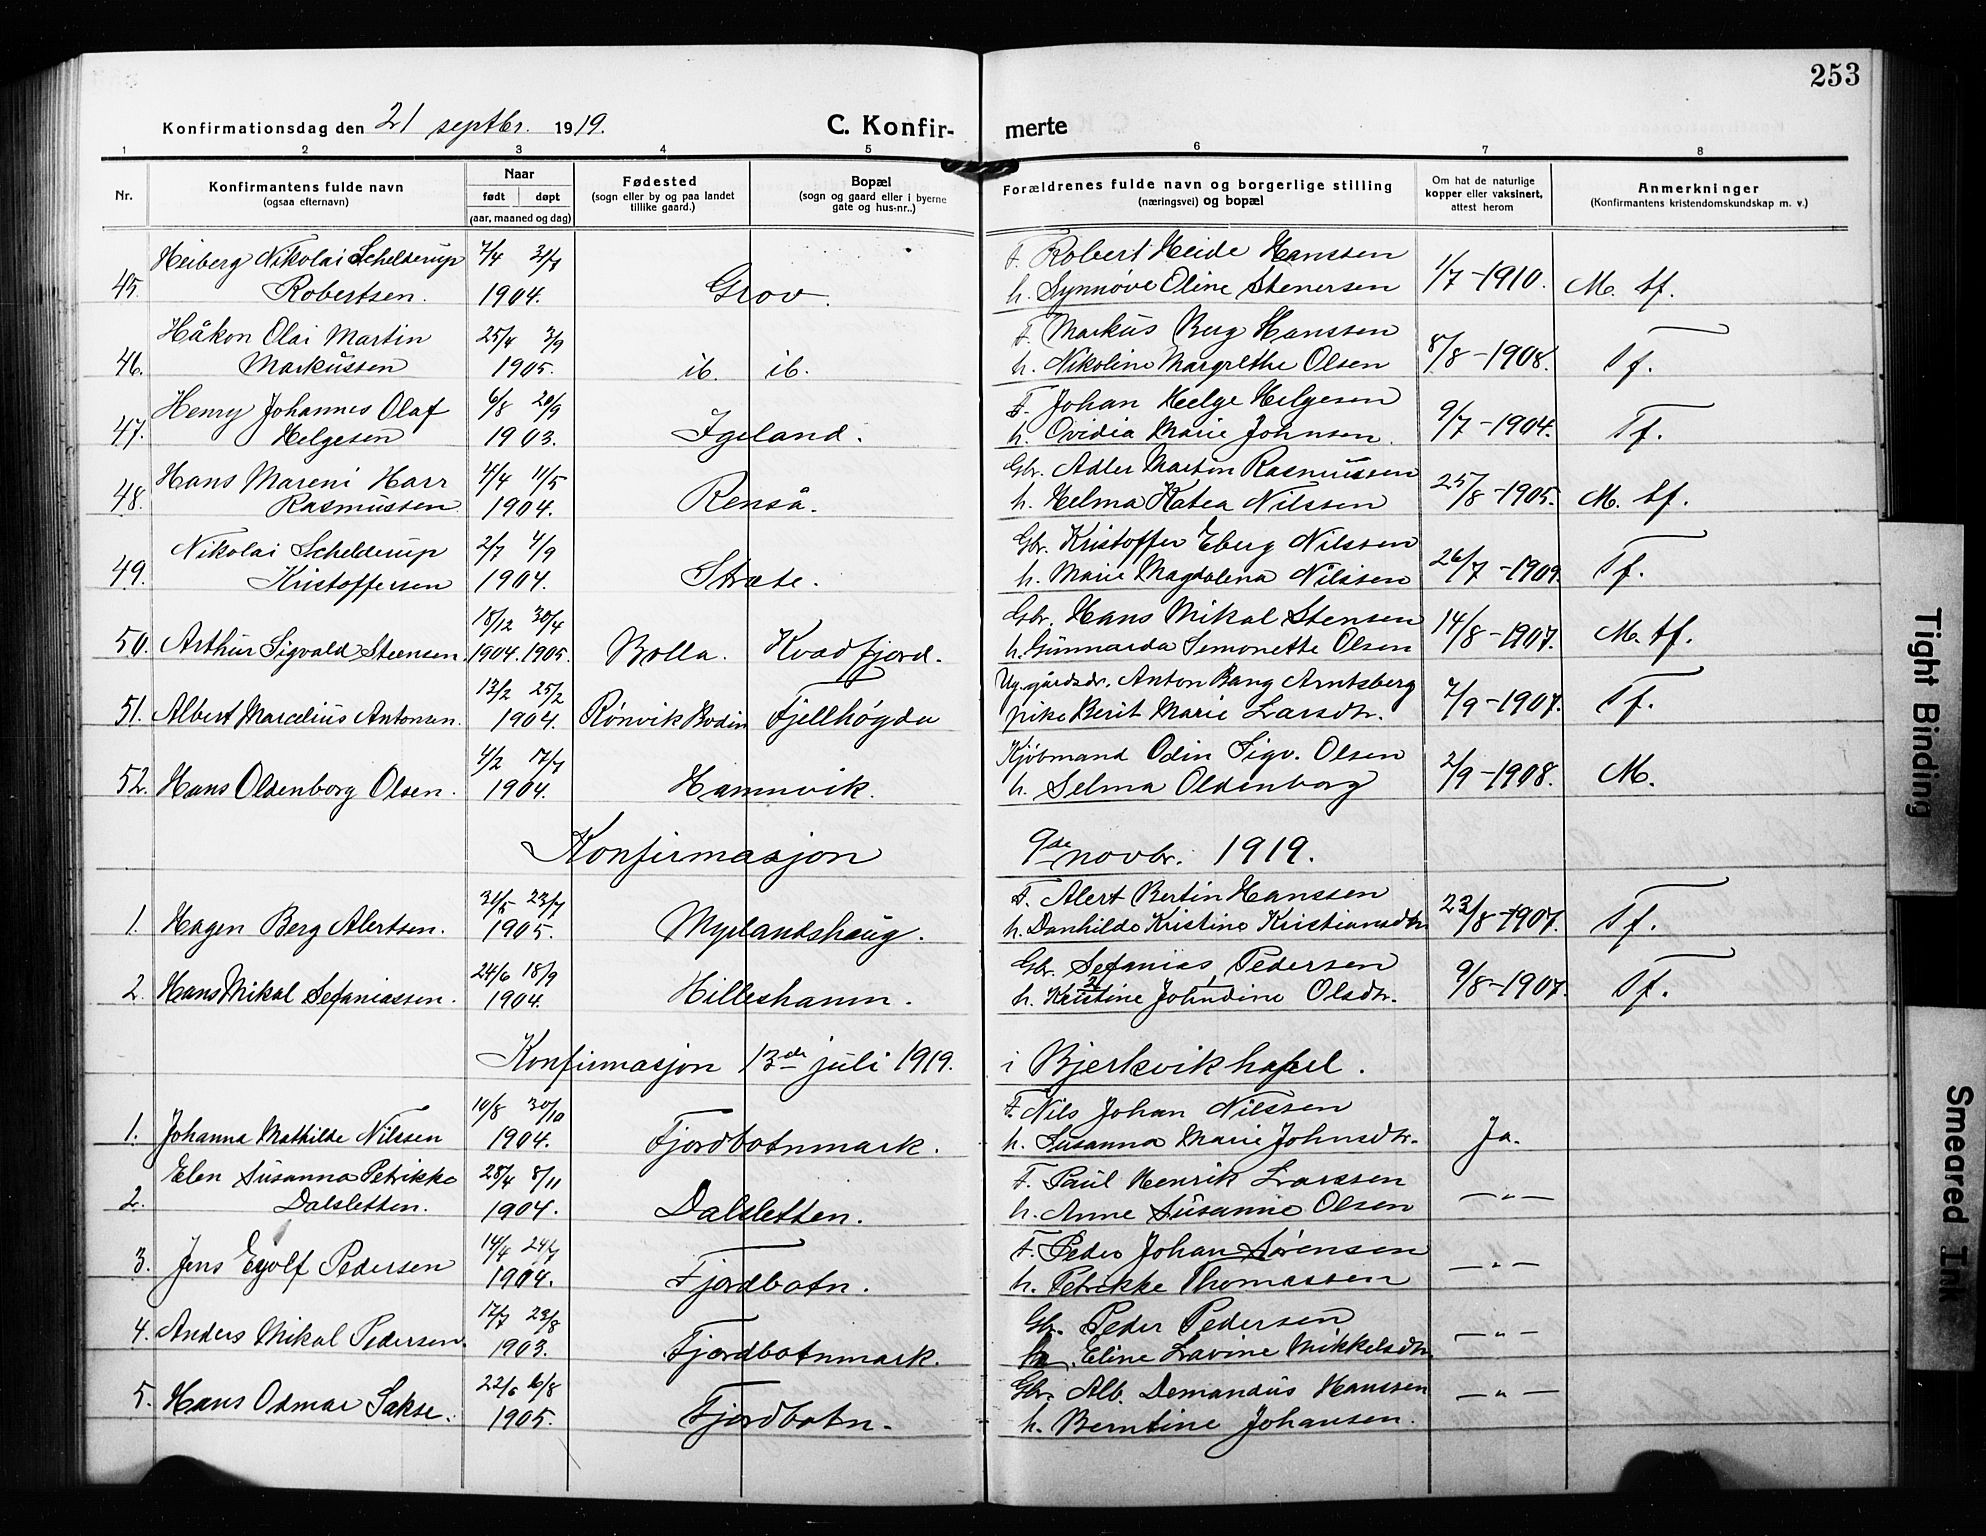 253
Konfirmationsdag den 21 septbr. 1919.
C. Konfir- merte
1 2 3 4 5 6 7 8
Nr.
Konfirmantens fulde navn
(ogsaa efternavn)
Naar
født døpt
(aar, maaned og dag)
Fødested
(sogn eller by og paa landet
tillike gaard.)
Bopæl
(sogn og gaard eller i byerne
gate og hus-nr..)
Forældrenes fulde navn og borgerlige stilling
(næringsvei) og bopæl
Om hat de naturlige
kopper eller vaksinert,
attest herom
Anmerkninger
(Konfirmantens kristendomskundskap m. v.)
Heiberg Nikolai Schelderup 7/4 31/7 F. Robert Heide Hanssen
45. Robertsen. 1904. Grov. h. Synnøve Oline Stenersen 1/7-1910. M. tf.
Håkon Olai Martin 25/4 3/9 F. Markus Berg Hanssen
46. Markussen 1905. ib. ib. h. Nikoline Margrethe Olsen 8/8-1908. Tf.
Henry Johannes Olaf 6/8 20/9 F. Johan Helge Helgesen
47. Helgesen 1903. Igeland. h. Ovidia Marie Johnsen. 9/7-1904. Tf.
Hans Mareni Harr 4/4 11/5 Gbr. Adler Martin Rasmussen
48. Rasmussen 1904. Renså. h. Helma Katea Nilssen 25/8-1905. M. tf.
Nikolai Schelderup 2/7 4/9 Gbr. Kristoffer Eberg Nilssen
49. Kristoffersen 1904. Stræte. h. Marie Magdalena Nilssen 26/7-1909. Tf.
18/12 30/4 Gbr. Hans Mikal Stensen
50. Arthur Sigvald Steensen. 1904. 1905. Bolla. Kvadfjord. h. Gunnarda Semonette Olsen 14/8-1907. M. tf.
13/2 25/2 Ug. gårdsdr. Anton Bang Arntsberg
51. Albert Marcelius Antonsen. 1904. Rønvik Bodin Fjellhøgda pike Berit Marie Larsdtr. 7/9-1907. Tf.
4/2 17/7 Kjøbmand Odin Sigv. Olsen
52. Hans Oldenborg Olsen. 1904. Hamnvik. h. Selma Oldenborg 2/9-1908. M.
Konfirmasjon 9de novbr. 1919.
31/5 23/7 F. Alert Bertin Hanssen
1. Hagen Berg Alertsen. 1905. Myrlandshaug. h. Danhilde Kristine Kristiansdtr. 23/8-1907. Tf.
24/6 18/9 Gbr. Sefanias Pedersen
2. Hans Mikal Sefaniassen. 1904. Hilleshamn. h. Kristine Johndine Olsdtr. 9/8-1907. Tf.
Konfirmasjon 13de juli 1919. i Bjerkvik kapel.
10/8 30/10 F. Nils Johan Nilssen
1. Johanna Mathilde Nilssen 1904. Fjordbotnmark. h. Susanna Marie Johnsdtr. Ja.
Elen Susanna Petrikke 28/4 8/11 F. Paul Henrik Larssen
2. Dalsletten. 1904. Dalsletten. h. Anne Susanne Olsen — " —
14/4 24/7 F. Peder Johan Sørensen
3. Jens Eyolf Pedersen 1904. Fjordbotn. h. Petrikke Thomassen — " —
17/7 23/8 Gbr. Peder Pedersen
4. Anders Mikal Pedersen. 1903. Fjordbotnmark. h. Eline Lavine Mikkelsdtr. — " —
22/6 6/8 Gbr. Alb. Demandus Hanssen
5. Hans Odmar Sakse. 1905. Fjordbotn. h. Berntine Johansen. — " —
Tight Binding
Smeared Ink